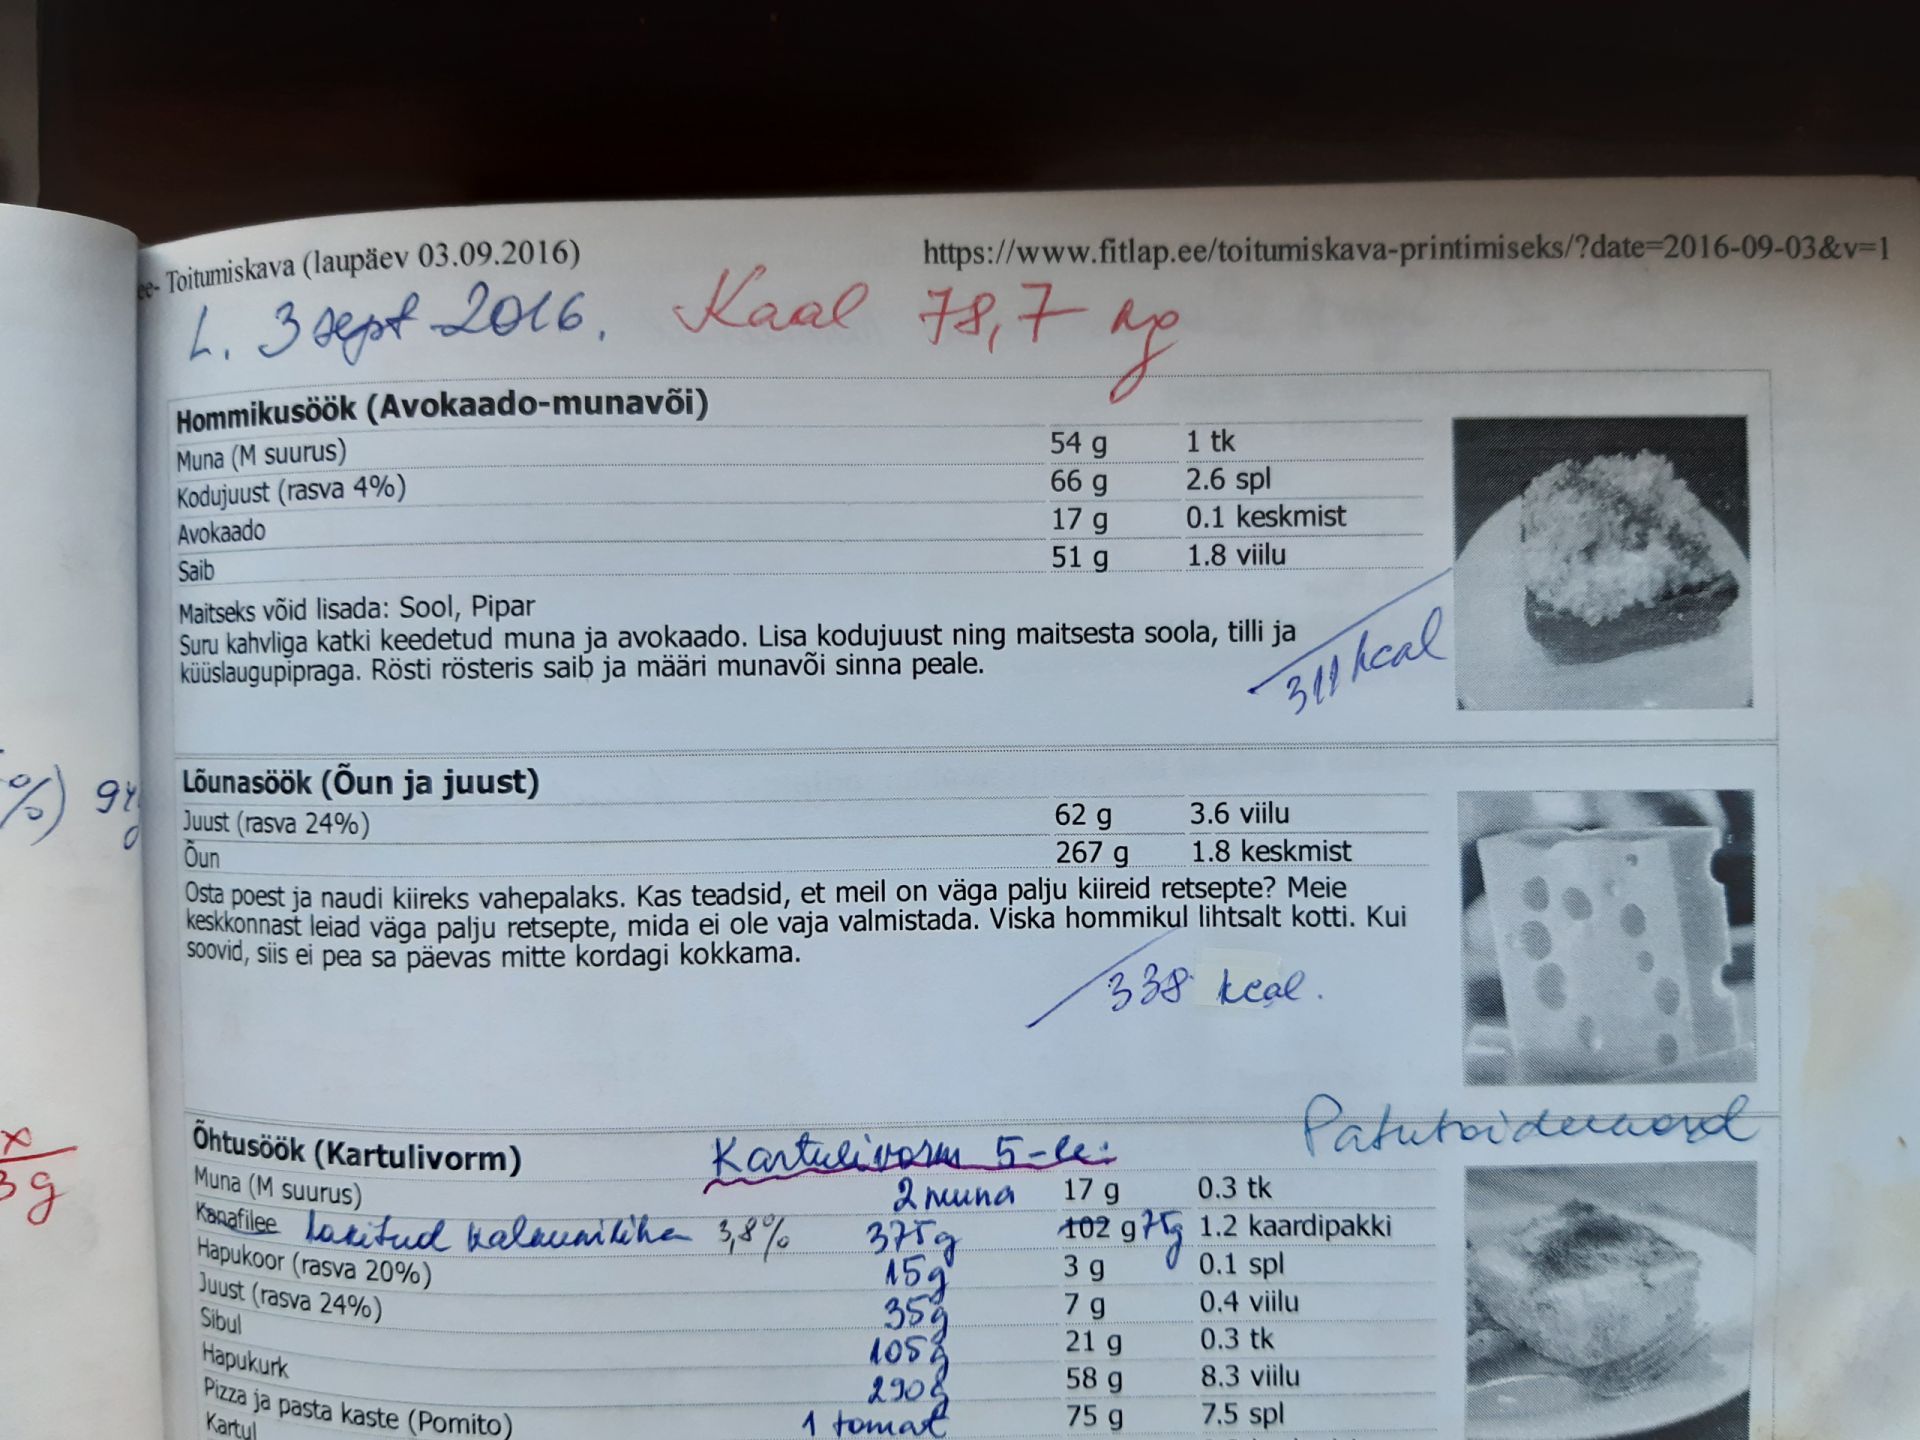 ee- Toitumiskava (laupäev 03.09.2016) https://www.fitlap.ee/toitumiskava-printimiseks/?date=2016-09-03&v=1
L. 3 sept 2016. Kaal 78,7 kg
Hommikusöök (Avokaado-munavõi)
Muna (M suurus) 54 g 1 tk
Kodujuust (rasva 4%) 66 g 2.6 spl
Avokaado 17 g 0.1 keskmist
Saib 51 g 1.8 viilu
Maitseks võid lisada: Sool, Pipar
Suru kahvliga katki keedetud muna ja avokaado. Lisa kodujuust ning maitsesta soola, tilli ja
küüslaugupipraga. Rösti rösteris saib ja määri munavõi sinna peale.
311 kcal
Lõunasöök (Õun ja juust)
%) 94 g
Juust (rasva 24%) 62 g 3.6 viilu
Õun 267 g 1.8 keskmist
Osta poest ja naudi kiireks vahepalaks. Kas teadsid, et meil on väga palju kiireid retsepte? Meie
keskkonnast leiad väga palju retsepte, mida ei ole vaja valmistada. Viska hommikul lihtsalt kotti. Kui
soovid, siis ei pea sa päevas mitte kordagi kokkama.
338 kcal.
x
3 g
Õhtusöök (Kartulivorm) Kartulivorm 5-le:
Muna (M suurus) 2 muna 17 g 0.3 tk
Kanafilee 3,8% 375g 102 g 75g 1.2 kaardipakki
Hapukoor (rasva 20%) 15g 3 g 0.1 spl
Juust (rasva 24%) 35g 7 g 0.4 viilu
Sibul 105g 21 g 0.3 tk
Hapukurk 290g 58 g 8.3 viilu
Pizza ja pasta kaste (Pomito) 1 tomat 75 g 7.5 spl
Kartul